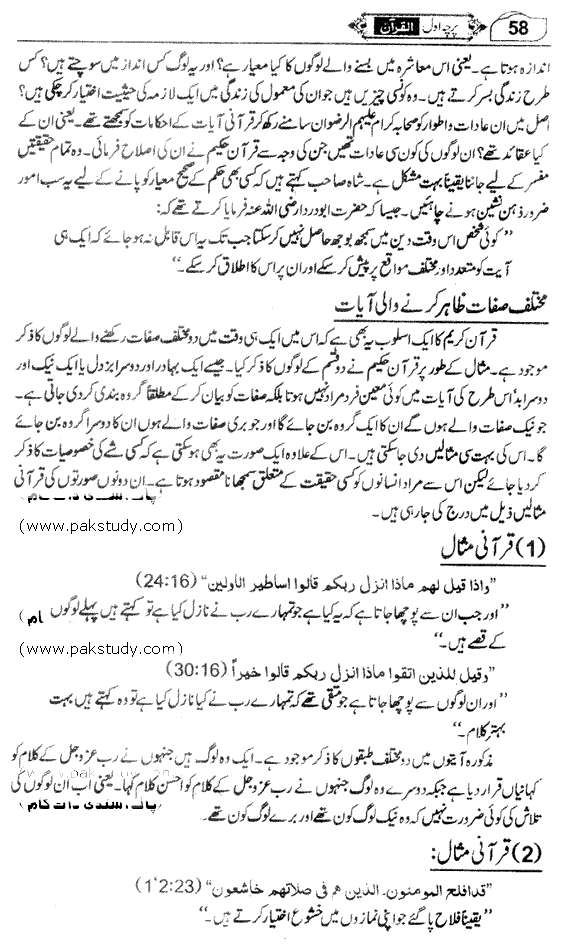 58 پرچہ اول القرآن
اندازہ ہوتا ہے۔ یعنی اس معاشرہ میں بسنے والے لوگوں کا کیا معیار ہے؟ اور یہ لوگ کس انداز میں سوچتے ہیں؟ کس
طرح زندگی بسر کرتے ہیں۔ وہ کونسی چیزیں ہیں جو ان کی معمول کی زندگی میں ایک لازمہ کی حیثیت اختیار کر چکی ہیں؟
اصل میں ان عادات و اطوار کو صحابہ کرام علیہم الرضوان سامنے رکھ کر قرآنی آیات کے احکامات کو سمجھتے تھے۔ یعنی ان کے
کیا عقائد تھے؟ ان لوگوں کی کون سی عادات تھیں جن کی وجہ سے قرآن حکیم نے ان کی اصلاح فرمائی۔ وہ تمام حقیقتیں
مفسر کے لیے جاننا یقیناً بہت مشکل ہے۔ شاہ صاحب کہتے ہیں کہ کسی بھی حکم کے صحیح معیار کو پانے کے لیے یہ سب امور
ضرور ذہن نشین ہونے چاہئیں۔ جیسا کہ حضرت ابودردا رضی اللہ عنہ فرمایا کرتے تھے کہ:
”کوئی شخص اس وقت دین میں سمجھ بوجھ حاصل نہیں کر سکتا جب تک یہ اس قابل نہ ہو جائے کہ ایک ہی
آیت کو متعدد اور مختلف مواقع پر پیش کر سکے اور ان پر اس کا اطلاق کر سکے۔“
مختلف صفات ظاہر کرنے والی آیات
قرآن کریم کا ایک اسلوب یہ بھی ہے کہ اس میں ایک ہی وقت میں دو مختلف صفات رکھنے والے لوگوں کا ذکر
موجود ہے۔ مثال کے طور پر قرآن حکیم نے دو قسم کے لوگوں کا ذکر کیا۔ جیسے ایک بہادر اور دوسرا بزدل یا ایک نیک اور
دوسرا بد اس طرح کی آیات میں کوئی معین فرد مراد نہیں ہوتا بلکہ صفات کو بیان کر کے مطلقاً گروہ بندی کر دی جاتی ہے۔
جو نیک صفات والے ہوں گے ان کا ایک گروہ بن جائے گا اور جو بری صفات والے ہوں ان کا دوسرا گروہ بن جائے
گا۔ اس کی بہت سی مثالیں دی جا سکتی ہیں۔ اس کے علاوہ ایک صورت یہ بھی ہو سکتی ہے کہ کسی شے کی خصوصیات کا ذکر
کر دیا جائے لیکن اس سے مراد انسانوں کو کسی حقیقت کے متعلق سمجھانا مقصود ہوتا ہے۔ ان دونوں صورتوں کی قرآنی
مثالیں ذیل میں درج کی جا رہی ہیں۔
(www.pakstudy.com)
(1) قرآنی مثال
”واذا قیل لهم ماذا انزل ربکم قالوا اساطیر الاولین“ (24:16)
”اور جب ان سے پوچھا جاتا ہے کہ یہ کیا ہے جو تمہارے رب نے نازل کیا ہے تو کہتے ہیں پہلے لوگوں
کے قصے ہیں۔“
(www.pakstudy.com)
”وقیل للذین اتقوا ماذا انزل ربکم قالوا خیراً“ (30:16)
”اور ان لوگوں سے پوچھا جاتا ہے جو متقی تھے کہ تمہارے رب نے کیا نازل کیا ہے تو وہ کہتے ہیں بہت
بہتر کلام۔“
مذکورہ آیتوں میں دو مختلف طبقوں کا ذکر موجود ہے۔ ایک وہ لوگ ہیں جنہوں نے رب عزوجل کے کلام کو
کہانیاں قرار دیا ہے جبکہ دوسرے وہ لوگ جنہوں نے رب عزوجل کے کلام کو احسن کلام کہا۔ یعنی اب ان لوگوں کی
تلاش کی کوئی ضرورت نہیں کہ وہ نیک لوگ کون تھے اور برے لوگ کون تھے۔
(2) قرآنی مثال:
”قد افلح المومنون۔ الذین هم فی صلاتهم خاشعون“ (1،2:23)
”یقیناً فلاح پا گئے جو اپنی نمازوں میں خشوع اختیار کرتے ہیں۔“